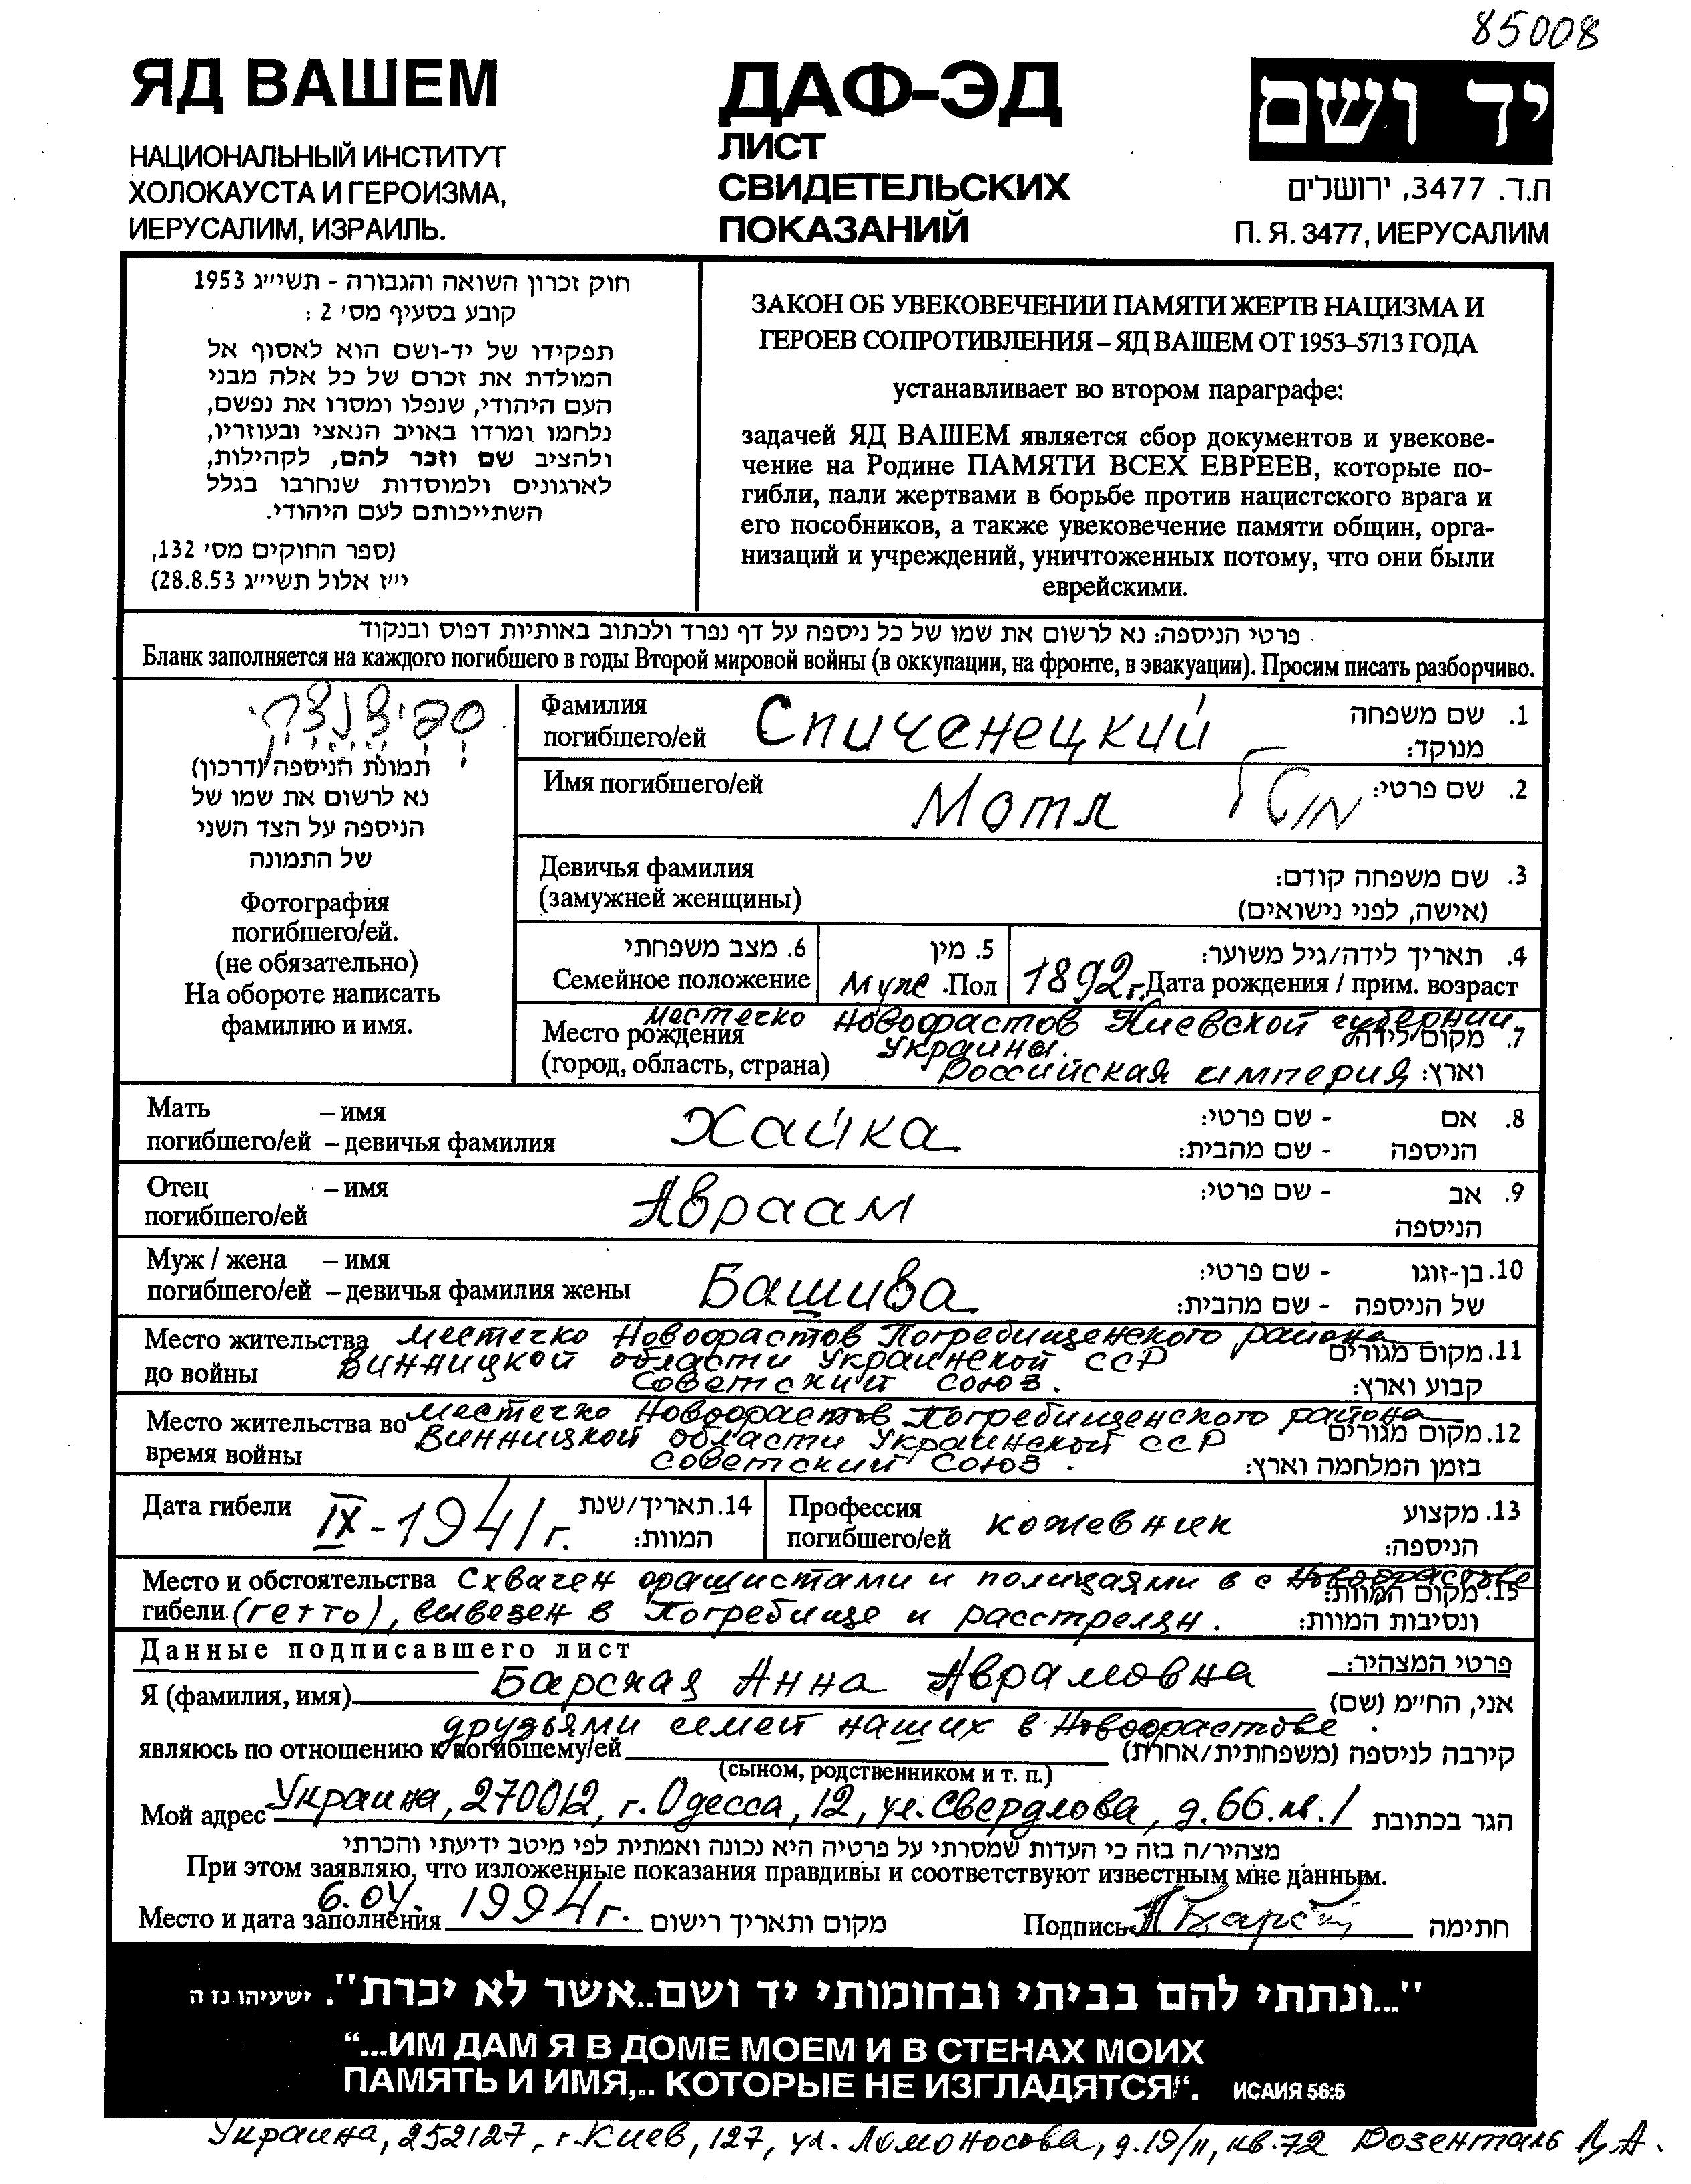 85008
ЯД ВАШЕМ
НАЦИОНАЛЬНЫЙ ИНСТИТУТ
ХОЛОКАУСТА И ГЕРОИЗМА,
ИЕРУСАЛИМ, ИЗРАИЛЬ.
ДАФ-ЭД
ЛИСТ
СВИДЕТЕЛЬСКИХ
ПОКАЗАНИЙ
יד ושם
ת.ד. 3477, ירושלים
П. Я. 3477, ИЕРУСАЛИМ
חוק זכרון השואה והגבורה - תשי״ג 1953
קובע בסעיף מס׳ 2 :
תפקידו של יד-ושם הוא לאסוף אל
המולדת את זכרם של כל אלה מבני
העם היהודי, שנפלו ומסרו את נפשם,
נלחמו ומרדו באויב הנאצי ובעוזריו,
ולהציב שם וזכר להם, לקהילות,
לארגונים ולמוסדות שנחרבו בגלל
השתייכותם לעם היהודי.
(ספר החוקים מס׳ 132,
י״ז אלול תשי״ג 28.8.53)
ЗАКОН ОБ УВЕКОВЕЧЕНИИ ПАМЯТИ ЖЕРТВ НАЦИЗМА И
ГЕРОЕВ СОПРОТИВЛЕНИЯ – ЯД ВАШЕМ ОТ 1953–5713 ГОДА
устанавливает во втором параграфе:
задачей ЯД ВАШЕМ является сбор документов и увекове-
чение на Родине ПАМЯТИ ВСЕХ ЕВРЕЕВ, которые по-
гибли, пали жертвами в борьбе против нацистского врага и
его пособников, а также увековечение памяти общин, орга-
низаций и учреждений, уничтоженных потому, что они были
еврейскими.
פרטי הניספה: נא לרשום את שמו של כל ניספה על דף נפרד ולכתוב באותיות דפוס ובנקוד
Бланк заполняется на каждого погибшего в годы Второй мировой войны (в оккупации, на фронте, в эвакуации). Просим писать разборчиво.
תמונת הניספה (דרכון)
נא לרשום את שמו של
הניספה על הצד השני
של התמונה
Фотография
погибшего/ей.
(не обязательно)
На обороте написать
фамилию и имя.
Фамилия
погибшего/ей Спиченецкий
1. שם משפחה
מנוקד:
Имя погибшего/ей Мотл מוטל
2. שם פרטי:
Девичья фамилия
(замужней женщины)
3. שם משפחה קודם:
(אישה, לפני נישואים)
6. מצב משפחתי
Семейное положение
5. מין
Муж. Пол
4. תאריך לידה/גיל משוער:
1892 г. Дата рождения / прим. возраст
местечко Новофастов Киевской губернии
Место рождения Украины. 7. מקום לידה
(город, область, страна) Российская империя וארץ:
Мать – имя
погибшего/ей – девичья фамилия Хайка
8. אם - שם פרטי:
הניספה - שם מהבית:
Отец – имя
погибшего/ей Авраам
9. אב - שם פרטי:
הניספה
Муж / жена – имя
погибшего/ей – девичья фамилия жены Башива
10. בן-זוגו - שם פרטי:
של הניספה - שם מהבית:
Место жительства местечко Новофастов Погребищенского района
до войны Винницкой области Украинской ССР
Советский Союз.
11. מקום מגורים
קבוע וארץ:
Место жительства во местечко Новофастов Погребищенского района
время войны Винницкой области Украинской ССР
Советский Союз.
12. מקום מגורים
בזמן המלחמה וארץ:
Дата гибели IX-1941 г. 14. תאריך/שנת
המוות:
Профессия
погибшего/ей кожевник
13. מקצוע
הניספה:
Место и обстоятельства Схвачен фашистами и полицаями в с Новофастове
гибели (гетто), вывезен в Погребище и расстрелян.
15. מקום המוות:
ונסיבות המוות:
Данные подписавшего лист פרטי המצהיר:
Я (фамилия, имя) Барская Анна Аврамовна אני, החי״מ (שם)
друзьями семей наших в Новофастове.
являюсь по отношению к погибшему/ей קירבה לניספה (משפחתית/אחרת)
(сыном, родственником и т. п.)
Мой адрес Украина, 270012, г. Одесса, 12, ул. Свердлова, д. 66. кв. 1 הגר בכתובת
מצהיר/ה בזה כי העדות שמסרתי על פרטיה היא נכונה ואמתית לפי מיטב ידיעתי והכרתי
При этом заявляю, что изложенные показания правдивы и соответствуют известным мне данным.
Место и дата заполнения 6.04. 1994 г. מקום ותאריך רישום Подпись АБарск חתימה
"...ונתתי להם בביתי ובחומותי יד ושם..אשר לא יכרת". ישעיהו נז ה
“...ИМ ДАМ Я В ДОМЕ МОЕМ И В СТЕНАХ МОИХ
ПАМЯТЬ И ИМЯ,.. КОТОРЫЕ НЕ ИЗГЛАДЯТСЯ“. ИСАИЯ 56:5
Украина, 252127, г. Киев, 127, ул. Ломоносова, д. 19/11, кв. 72 Розенталь Ц.А.